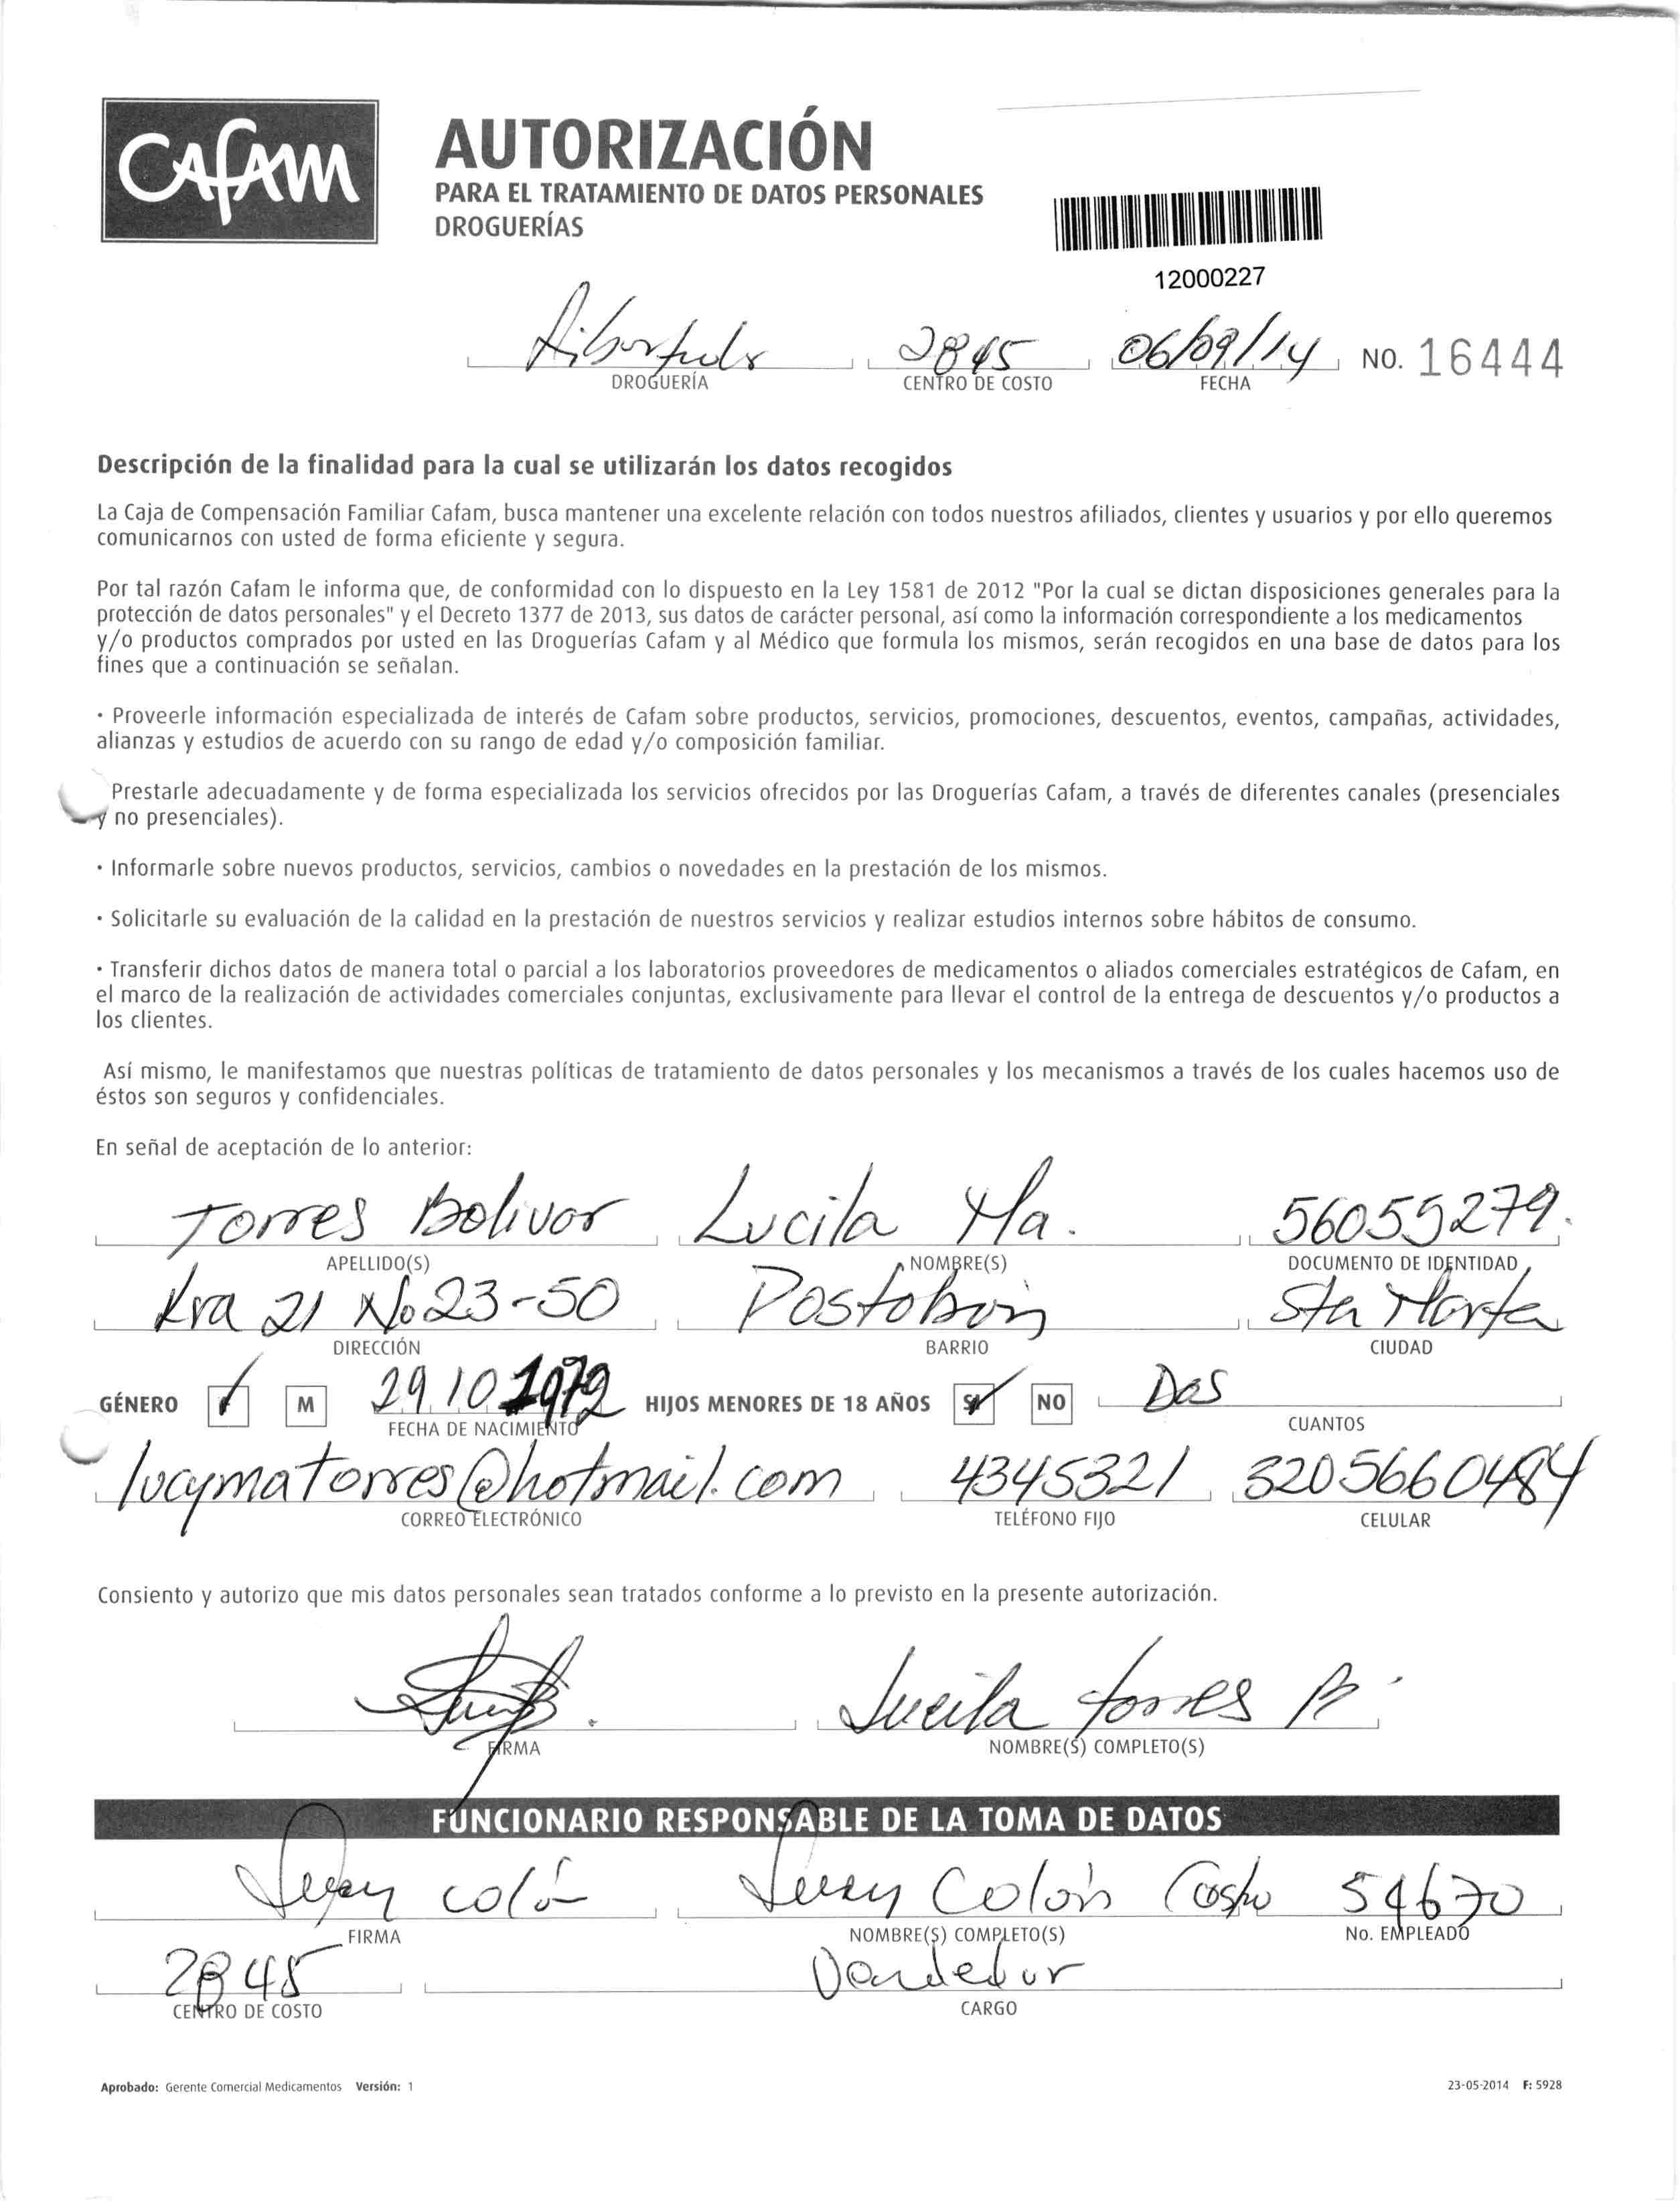 Cafam
AUTORIZACIÓN
PARA EL TRATAMIENTO DE DATOS PERSONALES
DROGUERÍAS
12000227
2845 06/09/14 NO. 16444
DROGUERÍA CENTRO DE COSTO FECHA
Descripción de la finalidad para la cual se utilizarán los datos recogidos
La Caja de Compensación Familiar Cafam, busca mantener una excelente relación con todos nuestros afiliados, clientes y usuarios y por ello queremos
comunicarnos con usted de forma eficiente y segura.
Por tal razón Cafam le informa que, de conformidad con lo dispuesto en la Ley 1581 de 2012 "Por la cual se dictan disposiciones generales para la
protección de datos personales" y el Decreto 1377 de 2013, sus datos de carácter personal, así como la información correspondiente a los medicamentos
y/o productos comprados por usted en las Droguerías Cafam y al Médico que formula los mismos, serán recogidos en una base de datos para los
fines que a continuación se señalan.
· Proveerle información especializada de interés de Cafam sobre productos, servicios, promociones, descuentos, eventos, campañas, actividades,
alianzas y estudios de acuerdo con su rango de edad y/o composición familiar.
Prestarle adecuadamente y de forma especializada los servicios ofrecidos por las Droguerías Cafam, a través de diferentes canales (presenciales
y no presenciales).
· Informarle sobre nuevos productos, servicios, cambios o novedades en la prestación de los mismos.
· Solicitarle su evaluación de la calidad en la prestación de nuestros servicios y realizar estudios internos sobre hábitos de consumo.
· Transferir dichos datos de manera total o parcial a los laboratorios proveedores de medicamentos o aliados comerciales estratégicos de Cafam, en
el marco de la realización de actividades comerciales conjuntas, exclusivamente para llevar el control de la entrega de descuentos y/o productos a
los clientes.
Así mismo, le manifestamos que nuestras políticas de tratamiento de datos personales y los mecanismos a través de los cuales hacemos uso de
éstos son seguros y confidenciales.
En señal de aceptación de lo anterior:
Torres Bolivar Lucila Ma. 56055279.
APELLIDO(S) NOMBRE(S) DOCUMENTO DE IDENTIDAD
Kra 21 No 23-50 Postobón Sta Marta
DIRECCIÓN BARRIO CIUDAD
GÉNERO M 29 10 1972 HIJOS MENORES DE 18 AÑOS SI NO Dos
FECHA DE NACIMIENTO CUANTOS
lucymatorres@hotmail.com 4345321 3205660484
CORREO ELECTRÓNICO TELÉFONO FIJO CELULAR
Consiento y autorizo que mis datos personales sean tratados conforme a lo previsto en la presente autorización.
Lucila Torres B.
FIRMA NOMBRE(S) COMPLETO(S)
FUNCIONARIO RESPONSABLE DE LA TOMA DE DATOS
Colón Colón 54670
FIRMA NOMBRE(S) COMPLETO(S) No. EMPLEADO
2845 Vendedor
CENTRO DE COSTO CARGO
Aprobado: Gerente Comercial Medicamentos Versión: 1 23-05-2014 F: 5928